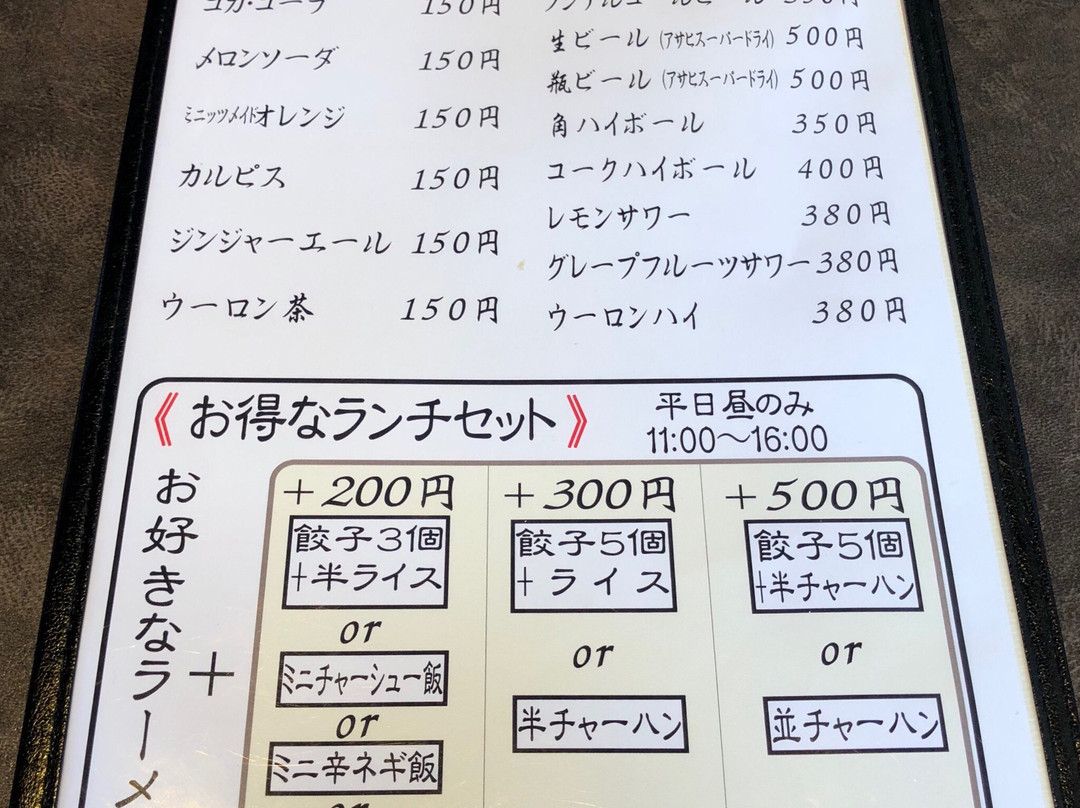 コカ・コーラ 150円
メロンソーダ 150円
ミニッツメイドオレンジ 150円
カルピス 150円
ジンジャーエール 150円
ウーロン茶 150円
ノンアルコールビール 350円
生ビール (アサヒスーパードライ) 500円
瓶ビール (アサヒスーパードライ) 500円
角ハイボール 350円
コークハイボール 400円
レモンサワー 380円
グレープフルーツサワー 380円
ウーロンハイ 380円
《お得なランチセット》
平日昼のみ
11:00～16:00
お好きなラーメ
+
+200円
餃子3個
+半ライス
or
ミニチャーシュー飯
or
ミニ辛ネギ飯
or
+300円
餃子5個
+ライス
or
半チャーハン
+500円
餃子5個
+半チャーハン
or
並チャーハン